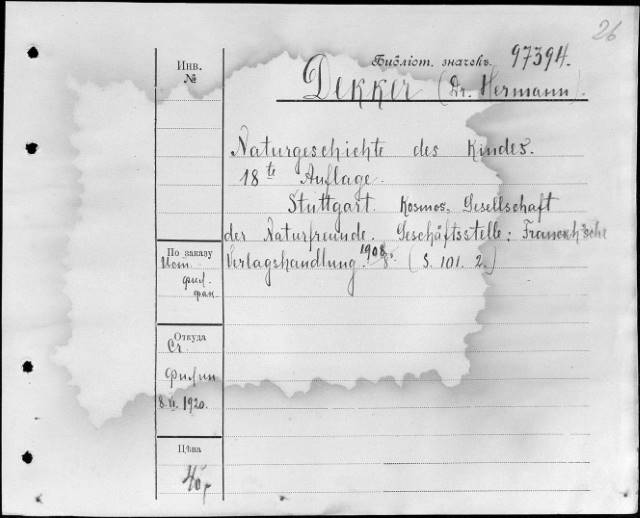 26
Библіот. значекъ 97394.
Инв.
№
Dekker (Dr. Hermann).
Naturgeschichte des Kindes.
18te Auflage.
Stuttgart. Kosmos, Gesellschaft
der Naturfreunde. Geschäftsstelle: Franckh'sche
Verlagshandlung. 1908. (S. 101. 2.)
По заказу
Ист.
фил.
фак.
Откуда
Ст.
Филип
1920.
Цѣна
40 р